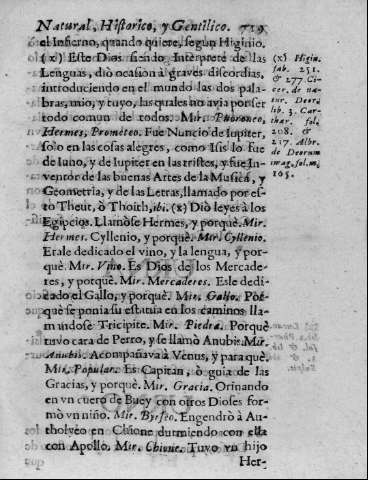 Natural, Historico, y Gentilico. 719
el Infierno, quando quiere, segun Higinio.
(x) Este Dios siendo Interprete de las
Lenguas, diò ocasion à graves discordias,
introduciendo en el mundo las dos pala-
bras, mio, y tuyo, las quales no avia por ser
todo comun de todos. Mir. Phoroneo,
Hermes, Prometeo. Fue Nuncio de Iupiter,
solo en las cosas alegres, como Isis lo fue
de Iuno, y de Iupiter en las tristes, y fue In-
ventor de las buenas Artes de la Musica, y
Geometria, y de las Letras, llamado por es-
to Theut, ò Thoith, ibi. (x) Diò leyes à los
Egipcios. Llamòse Hermes, y porquè. Mir.
Hermes. Cyllenio, y porquè. Mir. Cyllenio.
Erale dedicado el vino, y la lengua, y por-
què. Mir. Vino. Es Dios de los Mercade-
res, y porquè. Mir. Mercaderes. Esle dedi-
cado el Gallo, y porquè. Mir. Gallo. Por-
què se ponia su estatua en los caminos lla-
mandose Tricipite. Mir. Piedra. Porquè
tuvo cara de Perro, y se llamò Anubis. Mir.
Anubis. Acompañava à Venus, y para què.
Mir. Popular. Es Capitan, ò guia de las
Gracias, y porquè. Mir. Gracia. Orinando
en vn cuero de Buey con otros Dioses for-
mò vn niño. Mir. Byrseo. Engendrò à Au-
tholyco en Chione durmiendo con ella
con Apollo. Mir. Chione. Tuvo vn hijo
Her-
(x) Higin.
fab. 251.
& 277. Ci-
cer. de na-
tur. Deor.
lib. 3. Car-
thar. fol.
208. &
217. Albr.
de Deorum
imag. fol. m.
165.